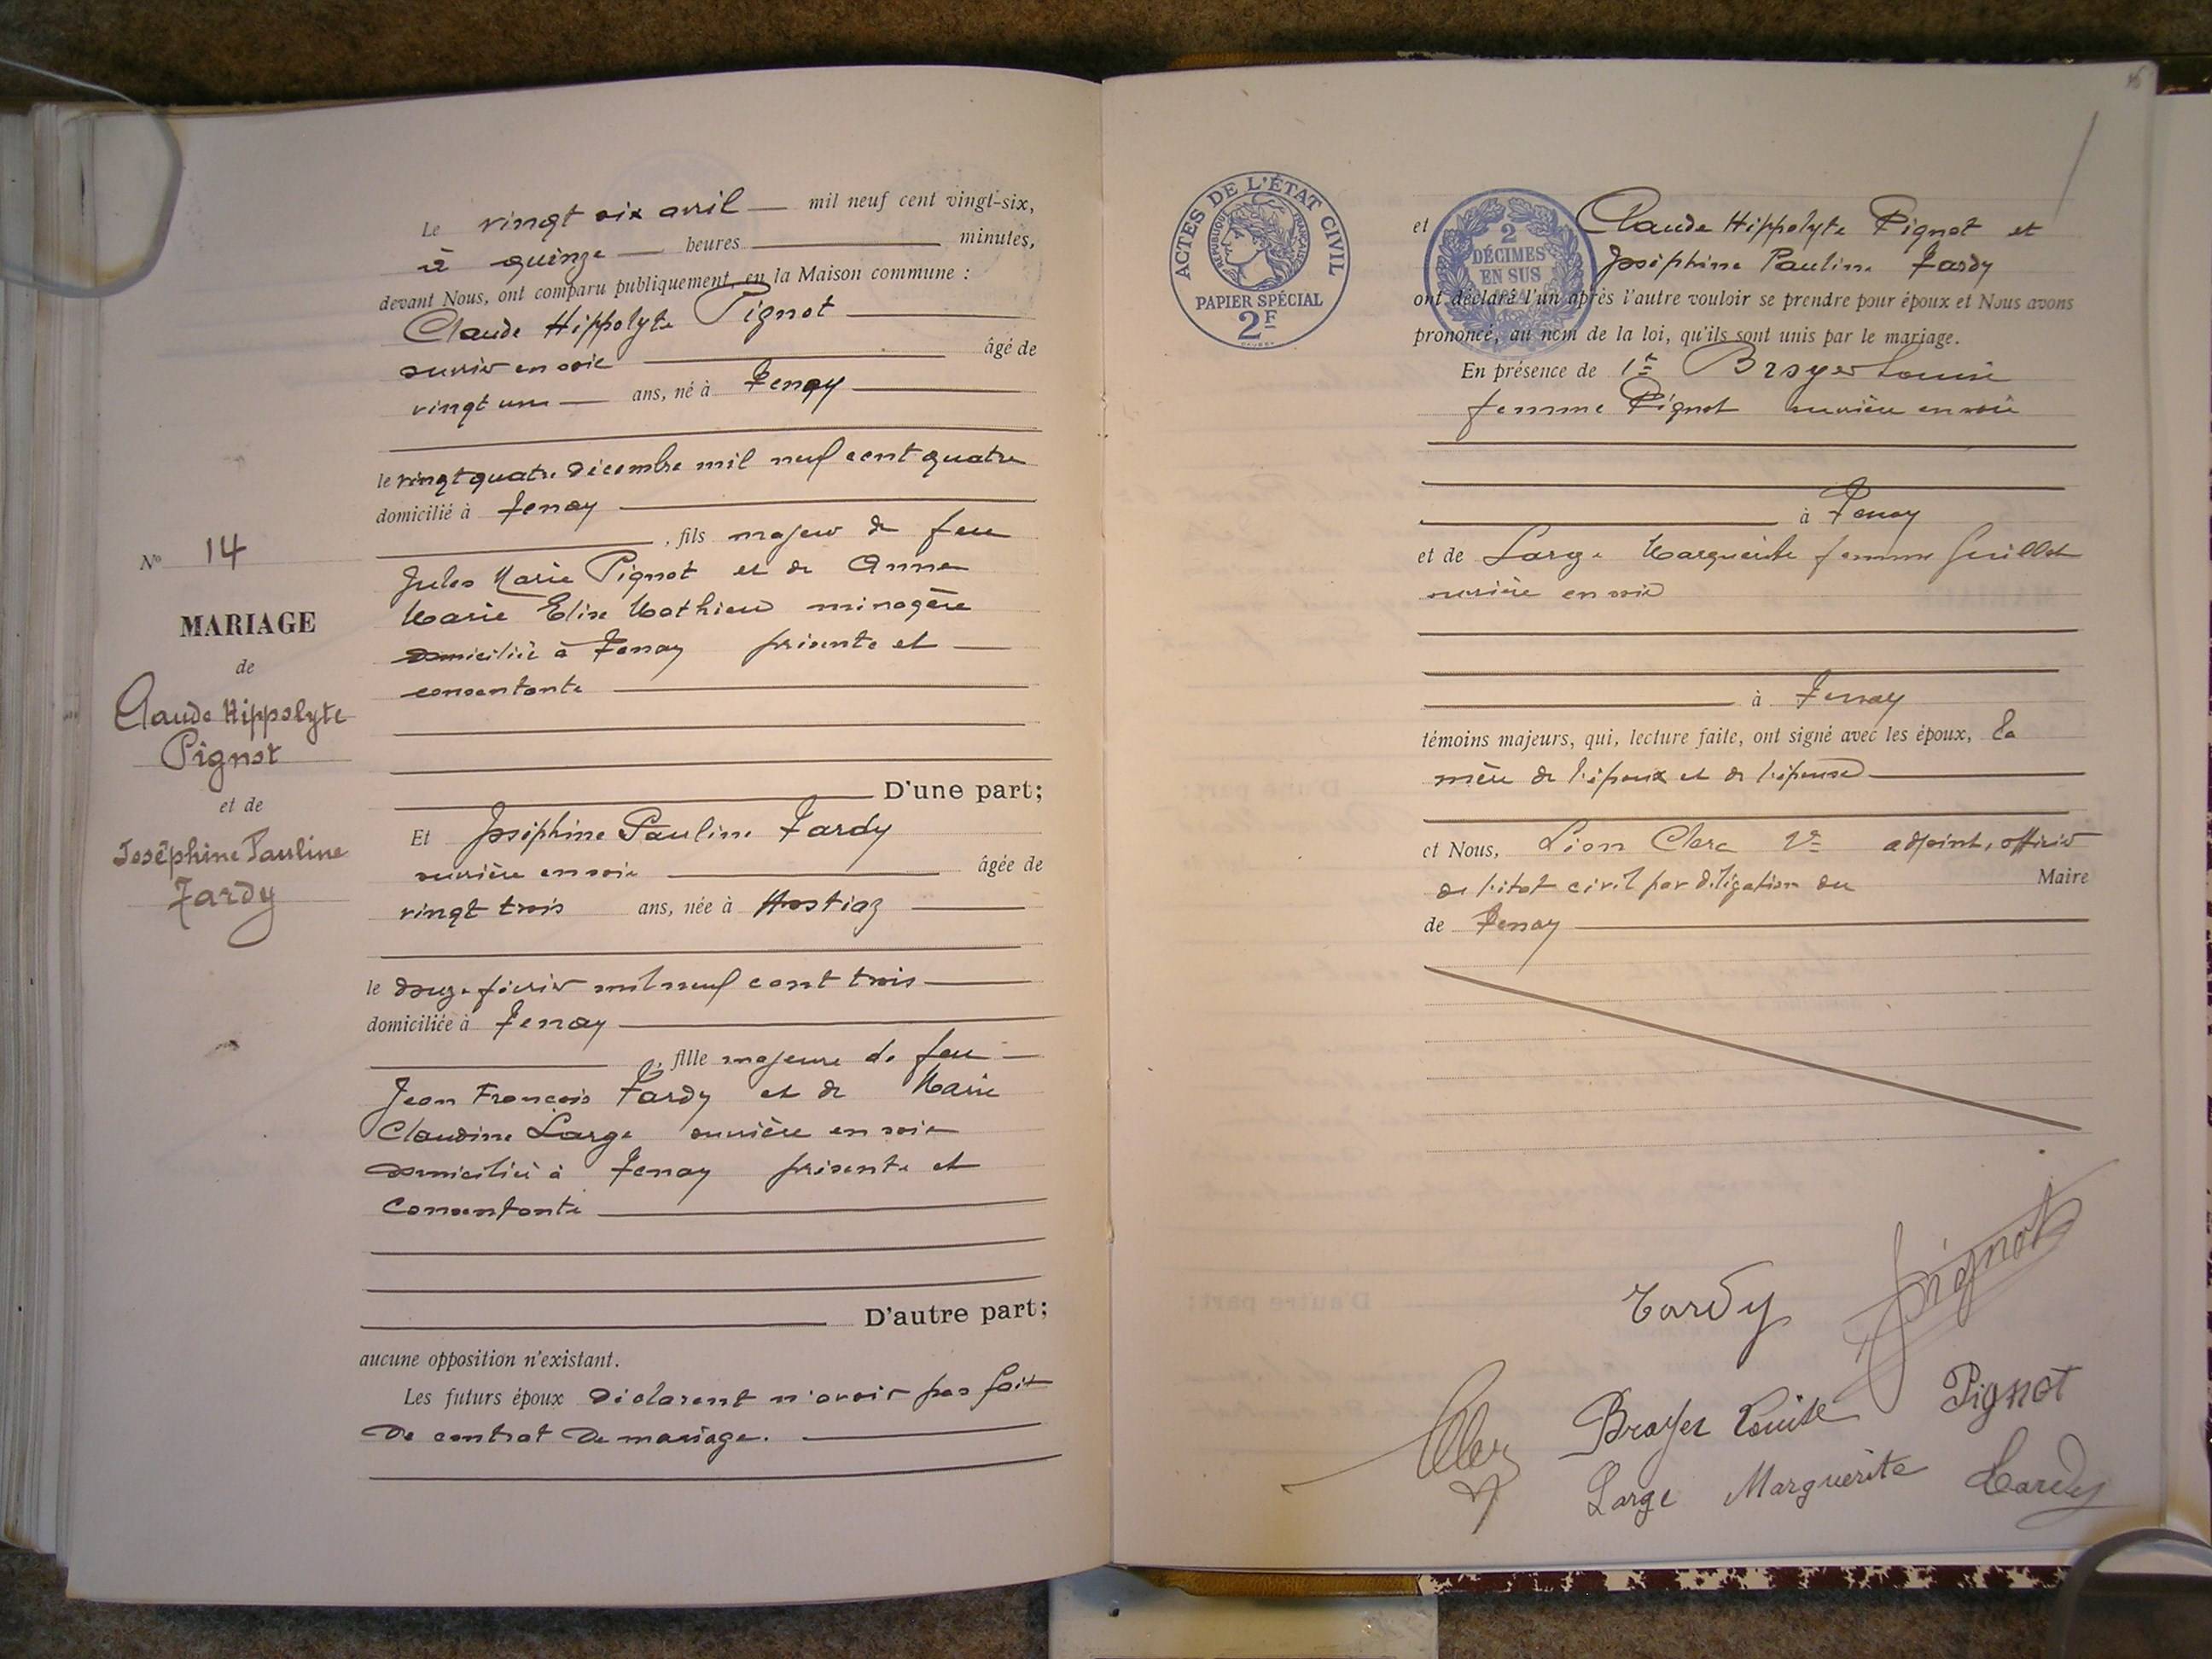 Le vingt six avril mil neuf cent vingt-six,
à quinze heures minutes,
devant Nous, ont comparu publiquement, en la Maison commune :
Claude Hippolyte Pignot
ouvrier en soie âgé de
vingt un ans, né à Tenay
le vingt quatre décembre mil neuf cent quatre
domicilié à Tenay
, fils majeur de feu
Jules Marie Pignot et de Anne
Marie Elise Mathieu ménagère
domiciliée à Tenay présente et
consentante
D'une part;
Nº 14
MARIAGE
de
Claude Hippolyte
Pignot
et de
Joséphine Pauline
Tardy
Et Joséphine Pauline Tardy
ouvrière en soie âgée de
vingt trois ans, née à Hostiaz
le douze février mil neuf cent trois
domiciliée à Tenay
, fille majeure de feu
Jean François Tardy et de Marie
Claudine Large ouvrière en soie
domiciliée à Tenay présente et
Consentante
D'autre part;
aucune opposition n'existant.
Les futurs époux déclarent n'avoir pas fait
de contrat de mariage.
ACTES DE L'ÉTAT CIVIL
RÉPUBLIQUE FRANÇAISE
PAPIER SPÉCIAL
2F
2
DÉCIMES
EN SUS
et Claude Hippolyte Pignot et
Joséphine Pauline Tardy
ont déclaré l'un après l'autre vouloir se prendre pour époux et Nous avons
prononcé, au nom de la loi, qu'ils sont unis par le mariage.
En présence de 1º Broyer Louise
femme Pignot ouvrière en soie
à Tenay
et de Large Marguerite femme Guillot
ouvrière en soie
à Tenay
témoins majeurs, qui, lecture faite, ont signé avec les époux, la
mère de l'époux et de l'épouse
et Nous, Léon Clerc adjoint, officier
de l'état civil par délégation du Maire
de Tenay
Tardy Pignot
Broyer Louise Pignot
Large Marguerite Tardy